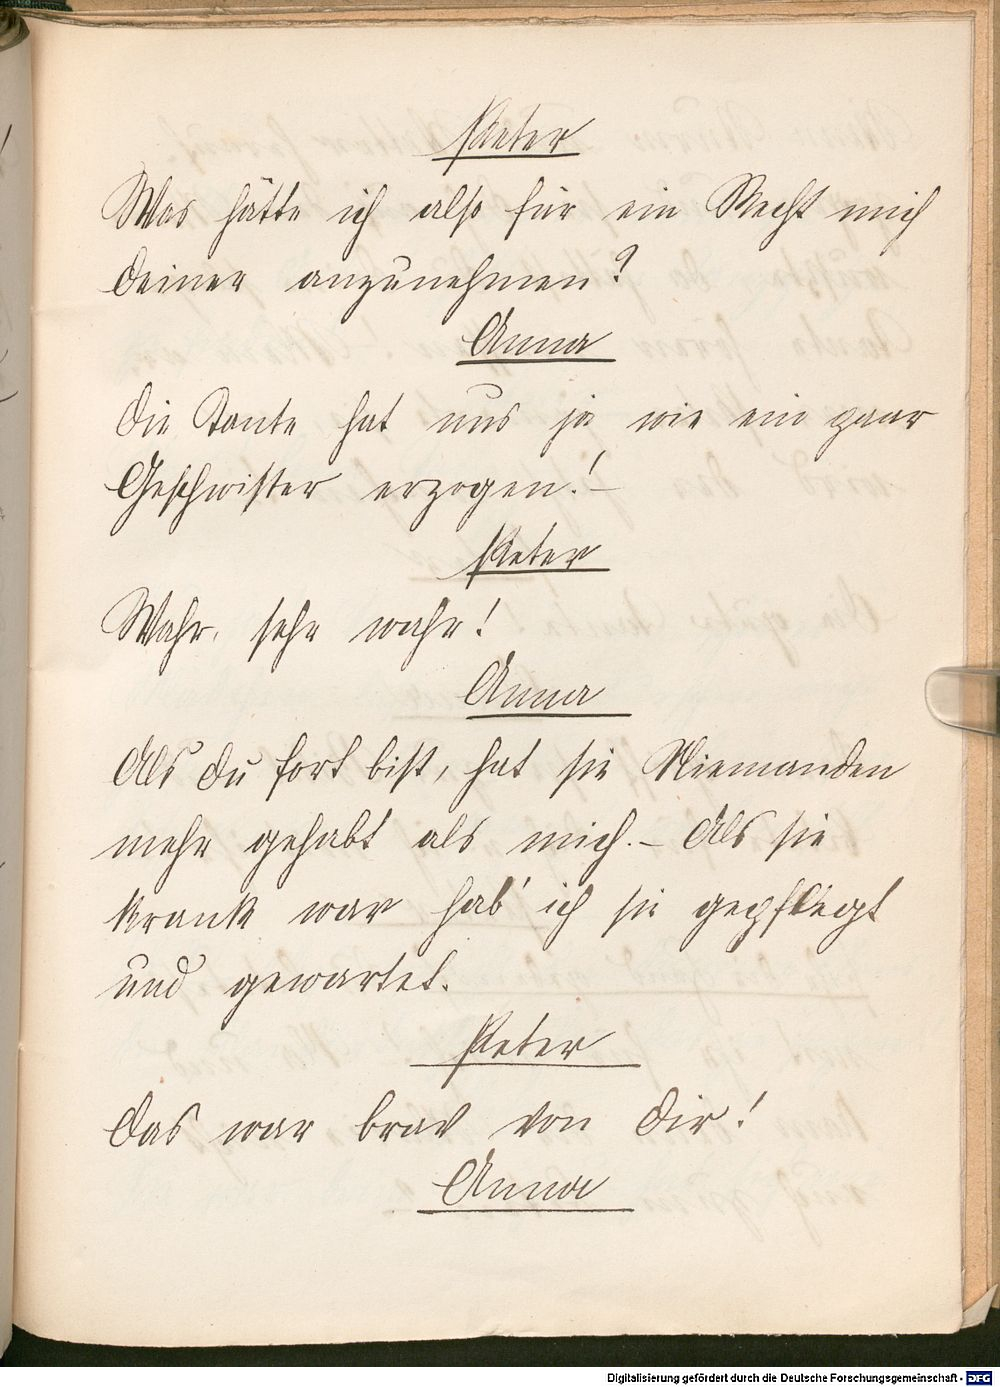 Peter
Was hätte ich also für ein Recht mich
deiner anzunehmen?
Anna
Die Tante hat uns ja wie ein paar
Geschwister erzogen! –
Peter
Wahr, sehr wahr!
Anna
Als du fort bist, hat sie Niemanden
mehr gehabt als mich. – Als sie
krank war hab' ich sie gepflegt
und gewartet.
Peter
Das war brav von Dir!
Anna
Digitalisierung gefördert durch die Deutsche Forschungsgemeinschaft - DFG